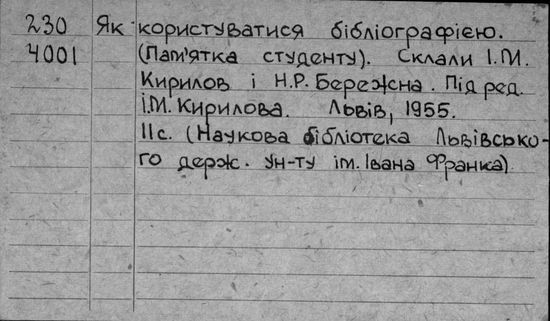 230 Як користуватися бібліографією.
4001 (Пам'ятка студенту). Склали І.М.
Кирилов і Н.Р. Бережна. Під ред.
І.М. Кирилова. Львів, 1955.
11с. (Наукова бібліотека Львівсько-
го держ. ун-ту ім. Івана Франка)